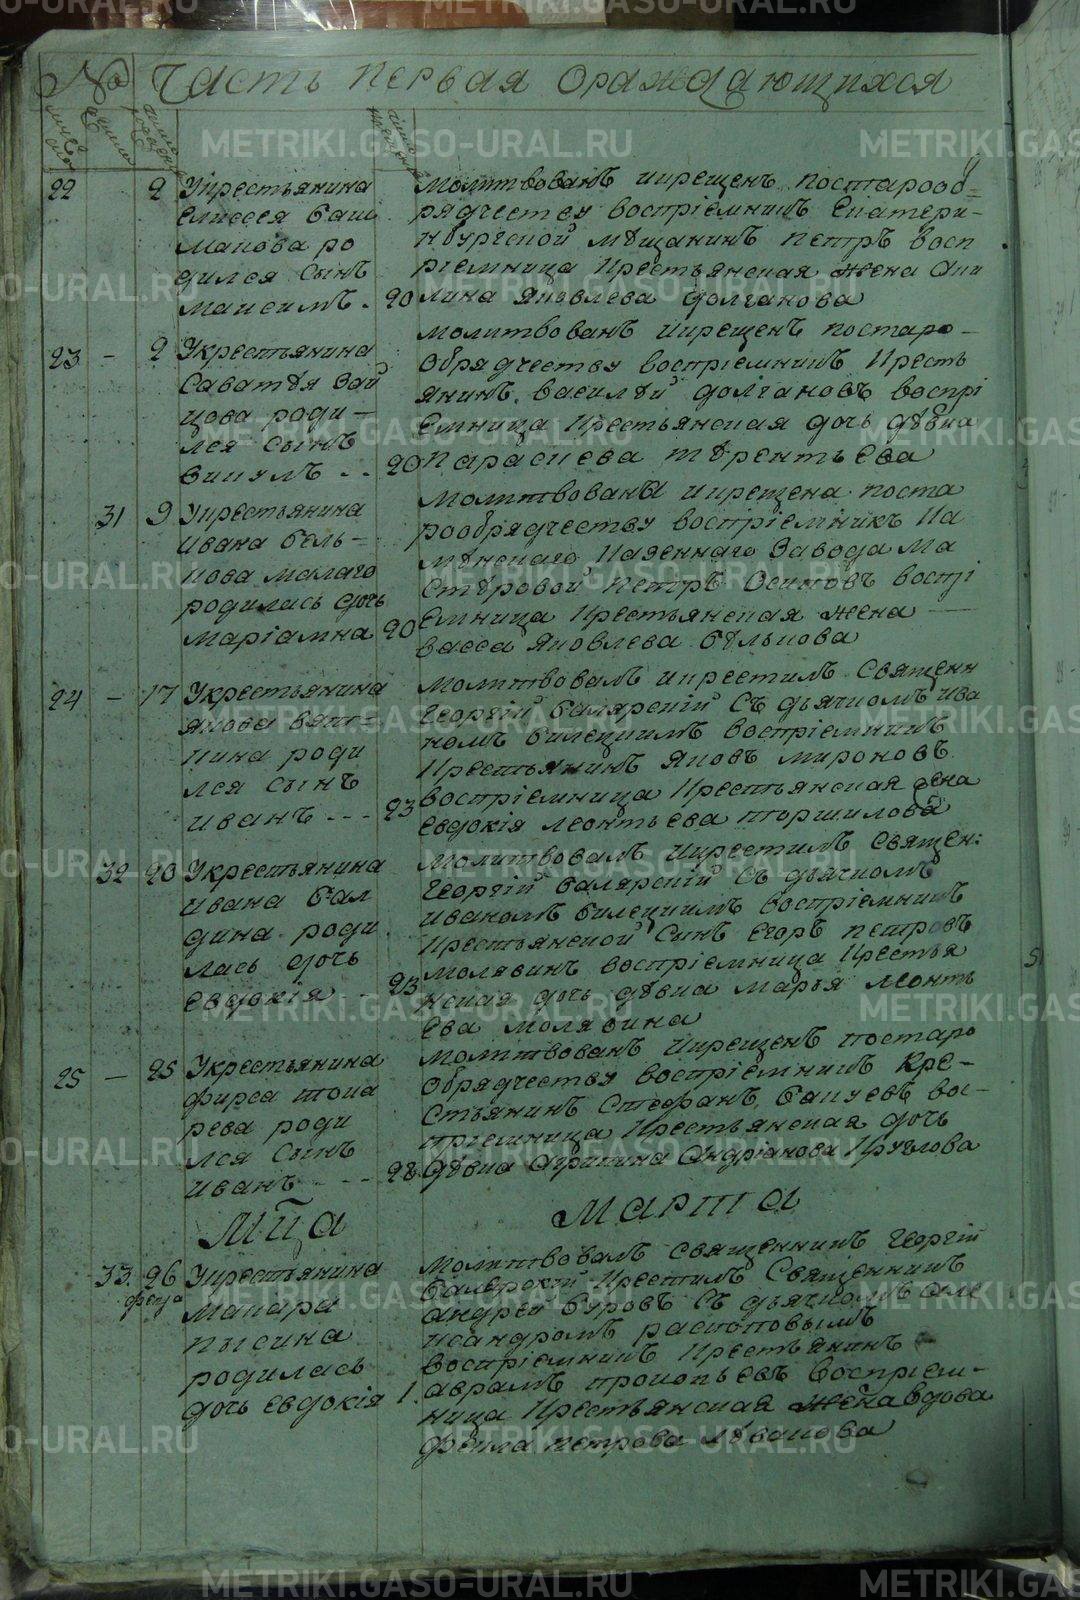 № Часть первая ораждающихся
22 2 Укрестьянина
Елисея Баш
макова ро
дился сынъ
Максимъ. 20
Молитвованъ икрещенъ постарооб=
рядчеству воспріемникъ Екатери-
нбургской мѣщанинъ Петръ восп
ріемница Крестьянская жена Аки
лина Яковлева Долганова
23 - 2 Укрестьянина
Саватѣя Зай
цова роди-
лся сынъ
Викулъ .. 20
Молитвованъ икрещенъ постаро-
обрядчеству воспріемникъ Кресть
янинъ Василѣй Долгановъ воспрі
емница Крестьянская дочь дѣвка
Параскева Терентьева
31 9 Укрестьянина
Ивана Бель-
кова малаго
родилась дочь
Маріамна 20
Молитвована икрещена поста
рообрядчеству воспріемникъ Ка
менскаго Казеннаго Завода Ма
стеровой Петръ Осиповъ воспрі
емница Крестьянская жена
Васса Яковлева Бѣлькова
24 - 17 Укрестьянина
Якова Вяти=
кина роди
лся сынъ
Иванъ --- 23
Молитвовалъ икрестилъ Священ
Георгій Балярскій съ дьячкомъ Ива
номъ Билецкимъ воспріемникъ
Крестьянинъ Яковъ Мироновъ
воспріемница Крестьянская жена
Евдокія Леонтьева Поршилова
32 20 Укрестьянина
Ивана Бал
дина роди
лась дочь
Евдокія - 23
Молитвовалъ икрестилъ Священ:
Георгій Балярскій съ дьячкомъ
Иваномъ Билецкимъ воспріемникъ
Крестьянской сынъ Егоръ Петровъ
Молявинъ воспріемница Крестья
нская дочь дѣвка Марья Леонть
ева Молявина
25 - 25 Укрестьянина
Фирса Тока
рева роди
лся сынъ
Иванъ --- 28
Молитвованъ икрещенъ постаро
обрядчеству воспріемникъ Кре-
стьянинъ Стефанъ Бакуевъ вос-
пріемница Крестьянская дочь
дѣвка Агрипина Андріанова Круглова
Мца Марта
33 26 Укрестьянина
февра Макара
Пысина
родилась
дочь Евдокія 1.
Молитвовалъ священникъ Георгій
Балярскій Крестилъ Священникъ
Андрей Буровъ съ дьячкомъ Але
ксандромъ Распоповымъ
воспріемникъ Крестьянинъ
Аврамъ Прокопьевъ воспріем-
ница Крестьянская жена вдова
Фекла Петрова Лѣвакова
METRIKI.GASO-URAL.RU